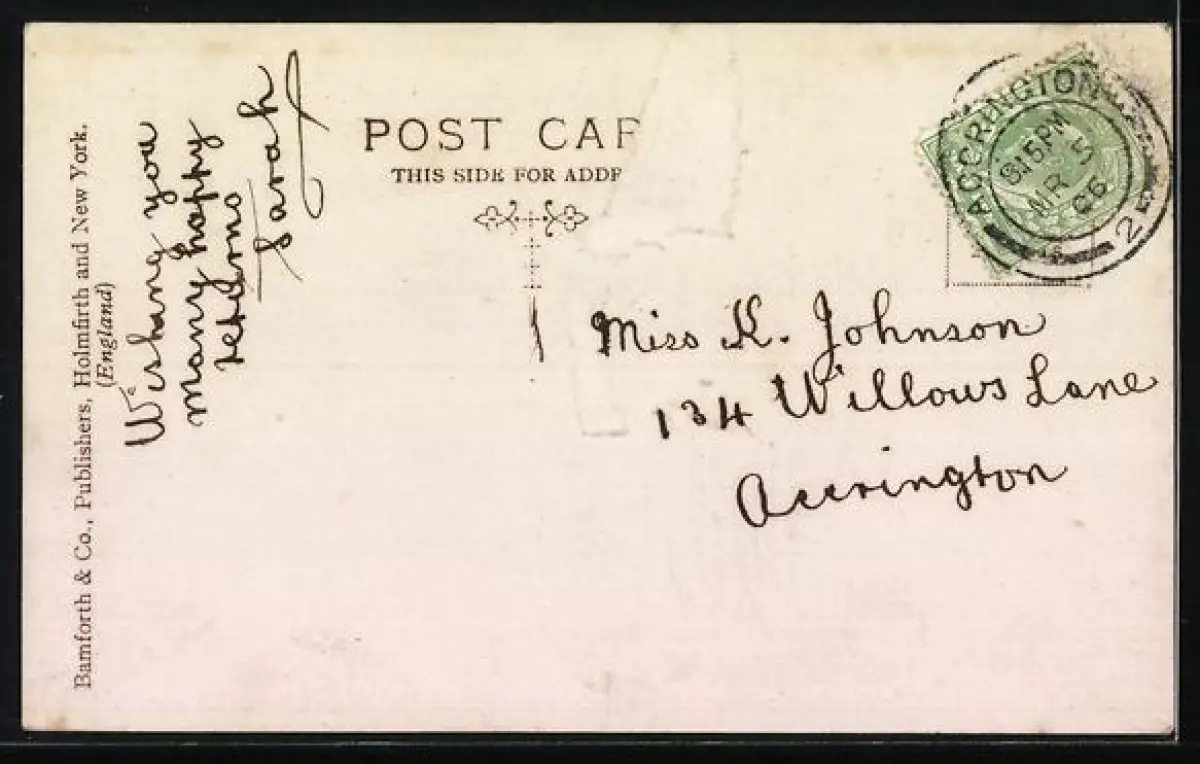 Bamforth & Co., Publishers, Holmfirth and New York.
(England)
Wishang you
many happy
returns
Sarah
POST CAR
THIS SIDE FOR ADDR
ACCRINGTON
815PM
MR 5
06
2
Miss K. Johnson
134 Willows Lane
Accrington